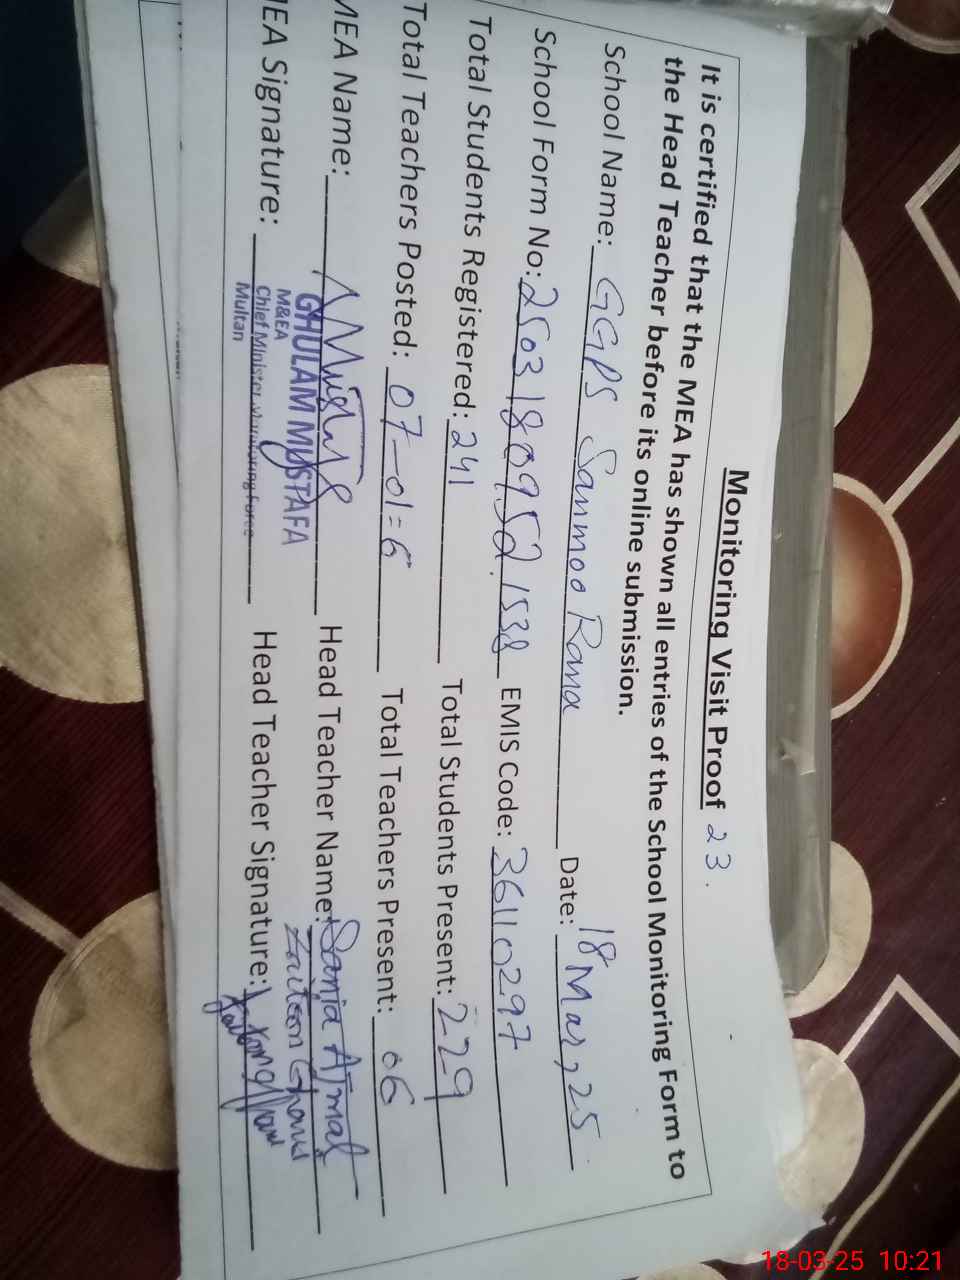 Monitoring Visit Proof 23.
It is certified that the MEA has shown all entries of the School Monitoring Form to
the Head Teacher before its online submission.
School Name: GGPS Sammoo Rana Date: 18 Mar, 25
School Form No: 2503180952.1538 EMIS Code: 36110297
Total Students Registered: 241 Total Students Present: 229
Total Teachers Posted: 07-01=6 Total Teachers Present: 06
MEA Name: Head Teacher Name: Sania Ajmal
GHULAM MUSTAFA
M&EA
MEA Signature: Chief Minister Monitoring Force Head Teacher Signature:
Multan
18-03-25 10:21